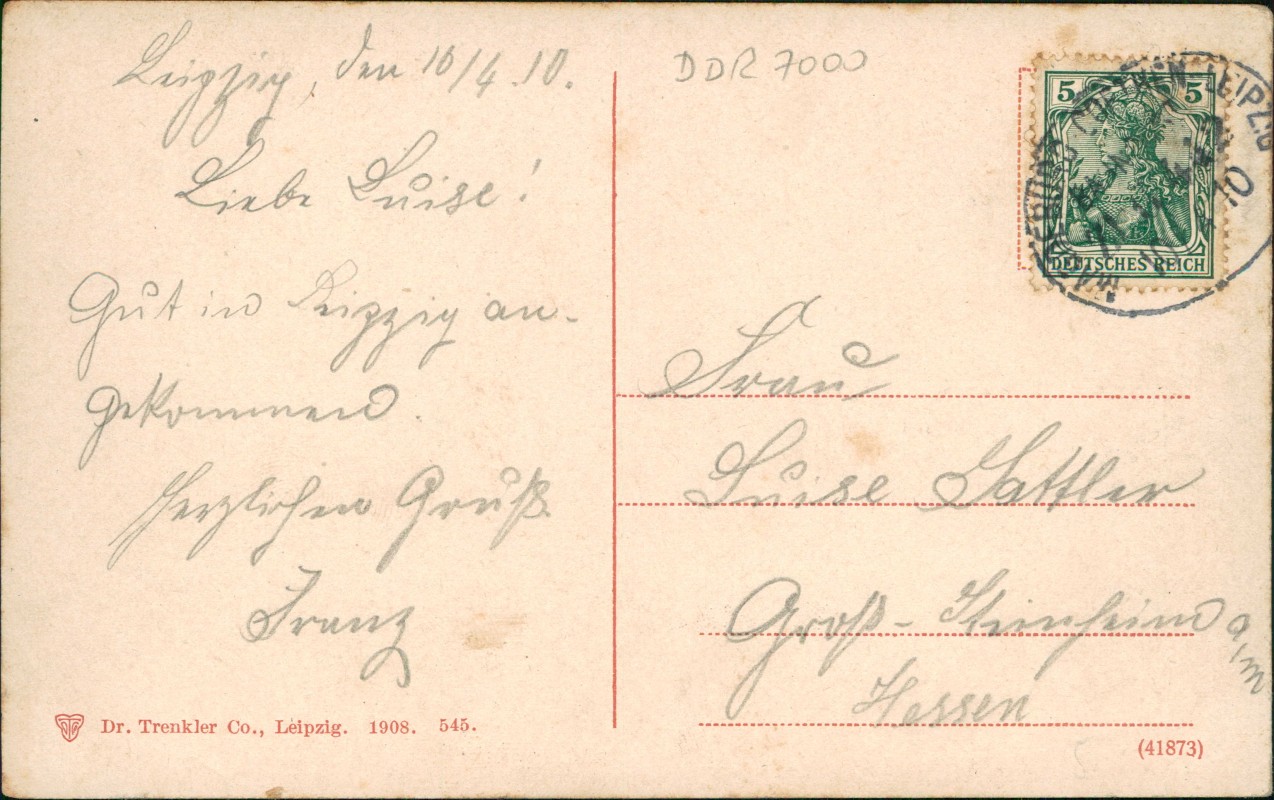 Leipzig, den 10/4.10.
Liebe Luise!
Gut in Leipzig an-
gekommen.
Herzlichen Gruß
Franz
Dr. Trenkler Co., Leipzig. 1908. 545.
DDR 7000
5 5
DEUTSCHES REICH
MAGDEBURG CÖTHEN LEIPZIG
10
Frau
Luise Sattler
Groß-Steinheim a/m
Hessen
(41873)